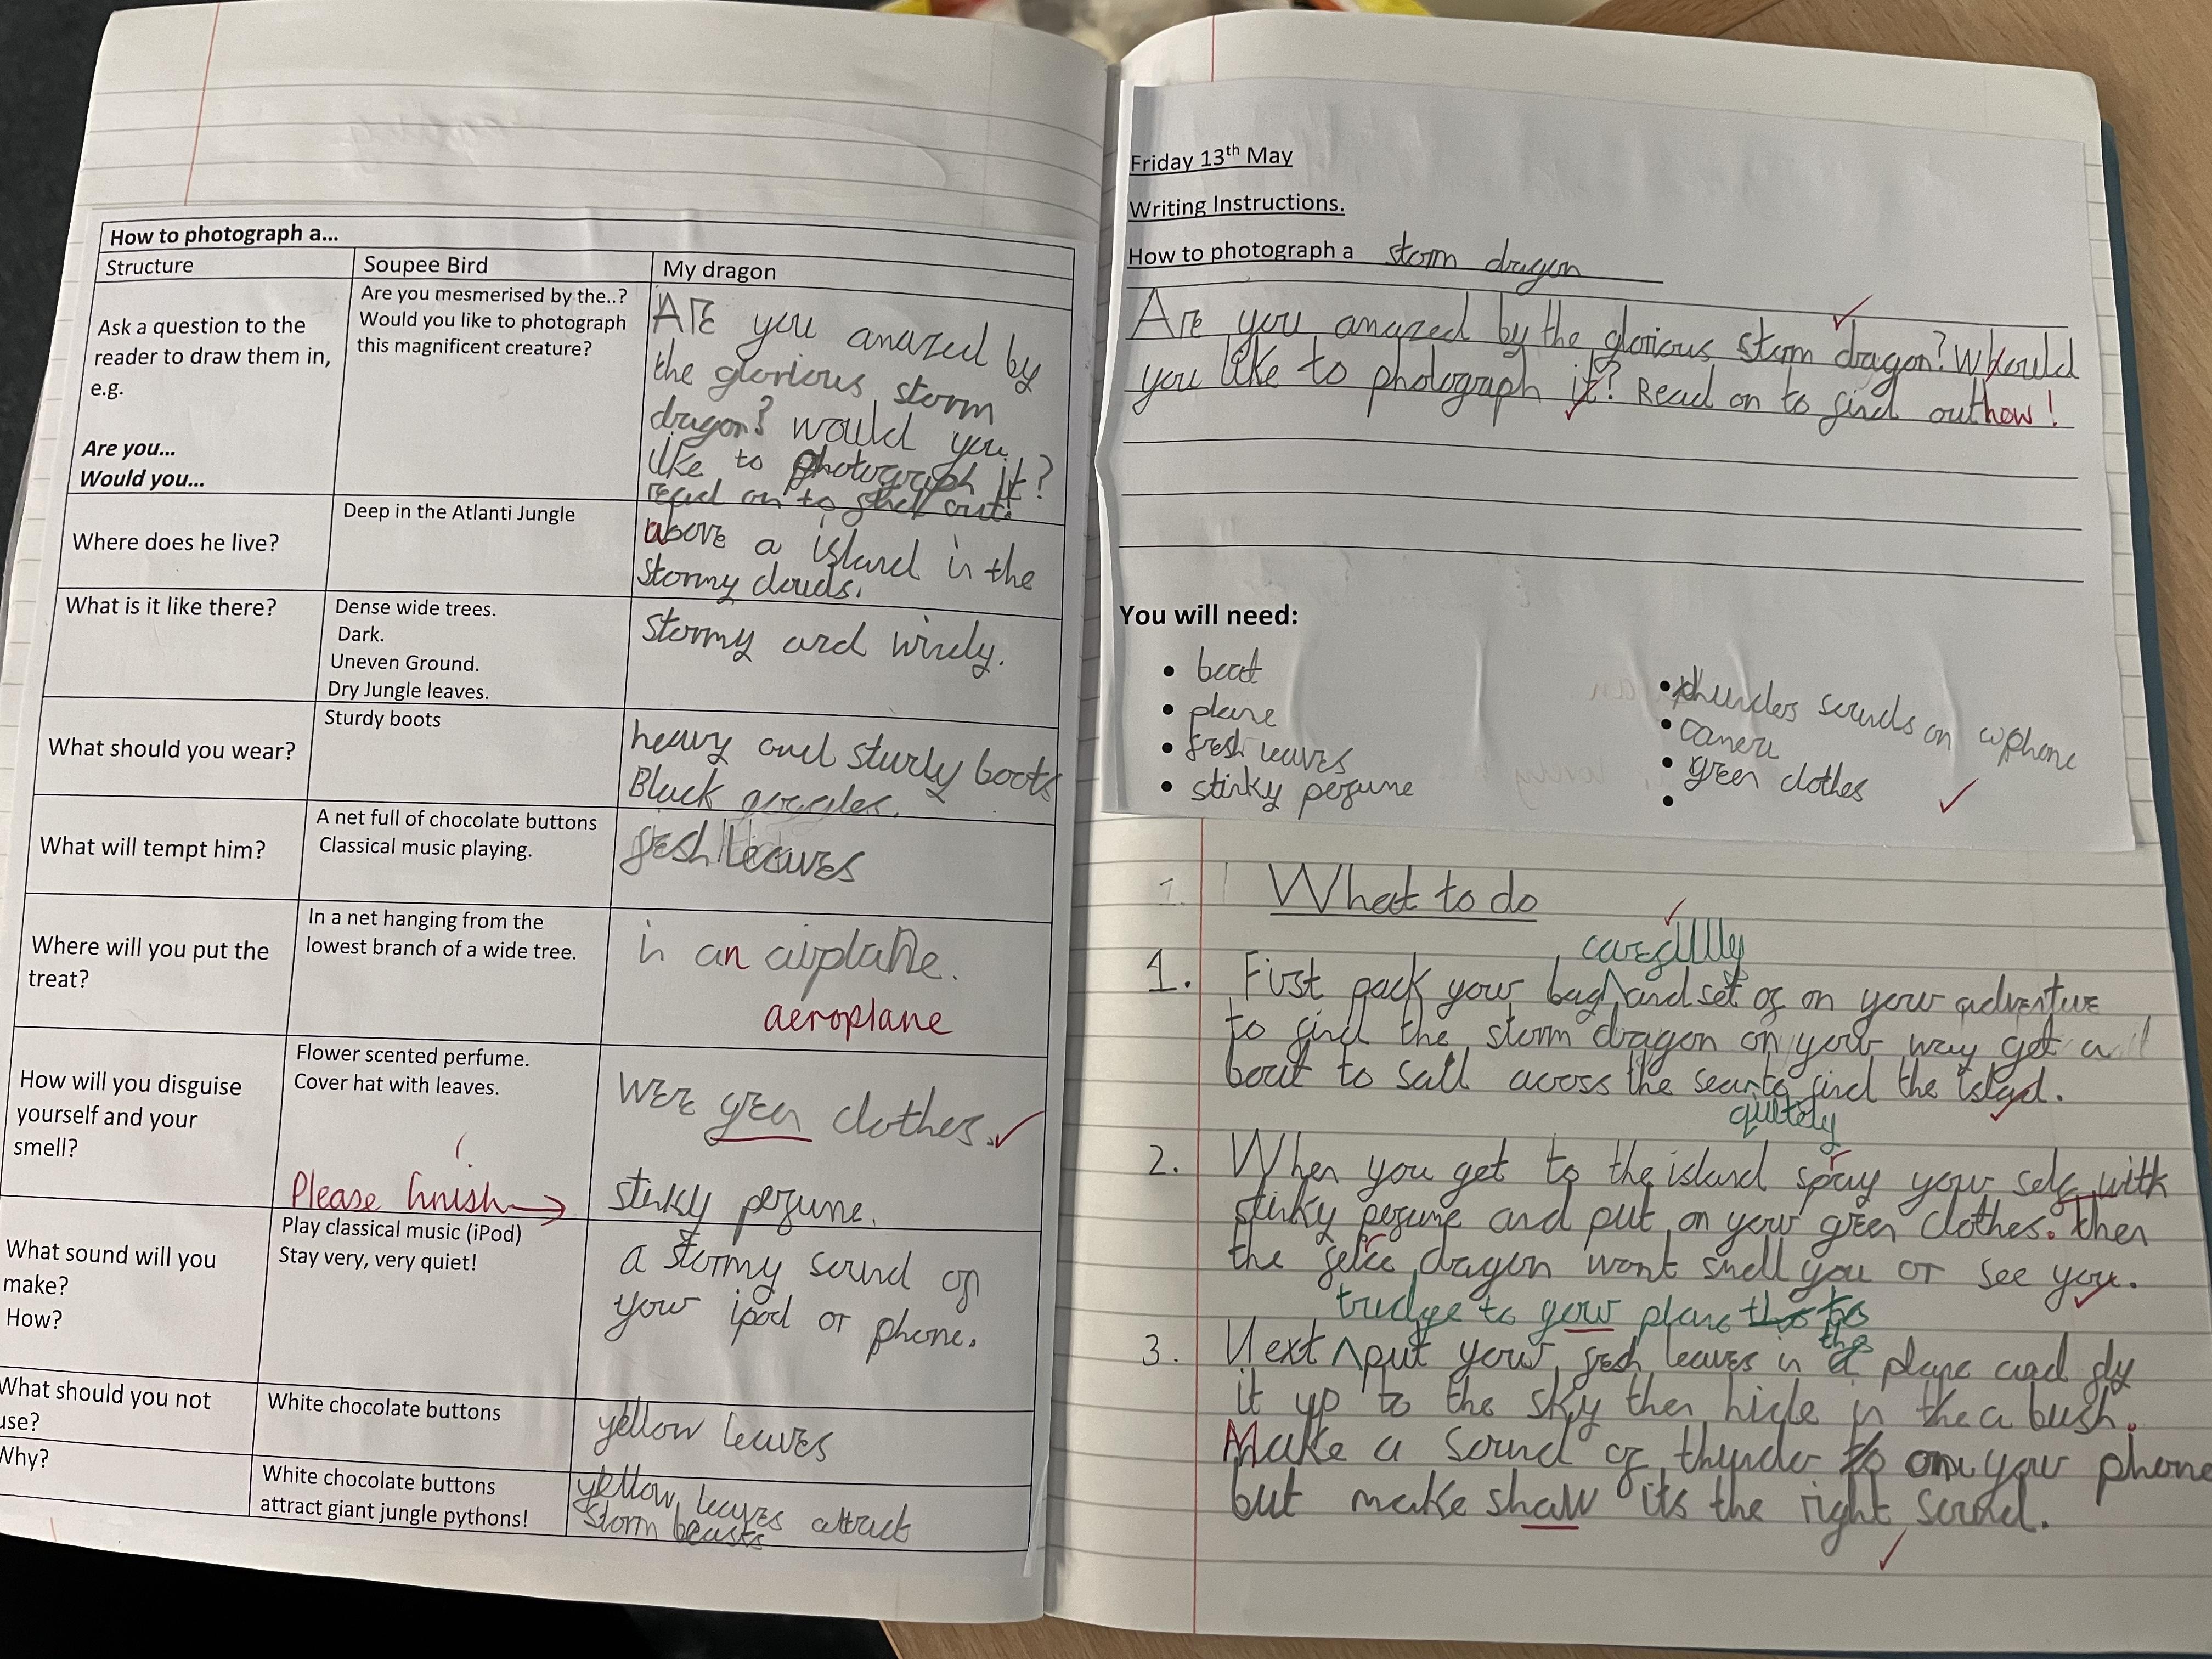 How to photograph a...
Structure
Soupee Bird
My dragon
Ask a question to the
reader to draw them in,
e.g.
Are you...
Would you...
Are you mesmerised by the..?
Would you like to photograph
this magnificent creature?
ArE you amazed by
the glorious storm
dragon? would you
like to photograph it?
read on to find out!
Where does he live?
Deep in the Atlanti Jungle
above a island in the
stormy clouds.
What is it like there?
Dense wide trees.
Dark.
Uneven Ground.
Dry Jungle leaves.
stormy and windy.
What should you wear?
Sturdy boots
heavy and sturdy boots
Black goggles.
What will tempt him?
A net full of chocolate buttons
Classical music playing.
fresh leaves
Where will you put the
treat?
In a net hanging from the
lowest branch of a wide tree.
in an airplane.
aeroplane
How will you disguise
yourself and your
smell?
Flower scented perfume.
Cover hat with leaves.
Please finish →
were green clothes.
stinky perfume.
What sound will you
make?
How?
Play classical music (iPod)
Stay very, very quiet!
a stormy sound on
your ipod or phone.
What should you not
use?
White chocolate buttons
yellow leaves
Why?
White chocolate buttons
attract giant jungle pythons!
yellow leaves attract
storm beasts
Friday 13th May
Writing Instructions.
How to photograph a storm dragon
Are you amazed by the glorious storm dragon? Would
you like to photograph it? Read on to find out how!
You will need:
• boat
• plane
• fresh leaves
• stinky perfume
• thunders sounds on a phone
• camera
• green clothes
•
What to do
carefully
1. First pack your bag and set of on your adventure
to find the storm dragon on your way get a
boat to sail across the sea to find the island.
quitely
2. When you get to the island spray your self with
stinky perfume and put on your green clothes. Then
the dragon wont smell you or see you.
trudge to your plane
the
3. Next put your fresh leaves in plane and fly
it up to the sky then hide in the a bush.
Make a sound of thunder on your phone
but make shaw its the right sound.